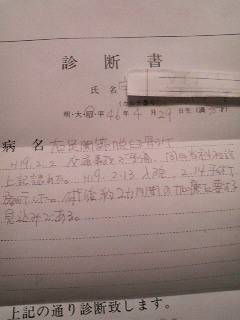 診断書
氏名
明・大・昭・平 46年4月29日生(満
病名 右足関節脱臼骨折
H19.2.2 交通事故で受傷、同日当科初診
上記認めた。H19.2.13 入院 2.14 手術
施行した。術後約2カ月間の加療を要する
見込みである。
上記の通り診断致します。